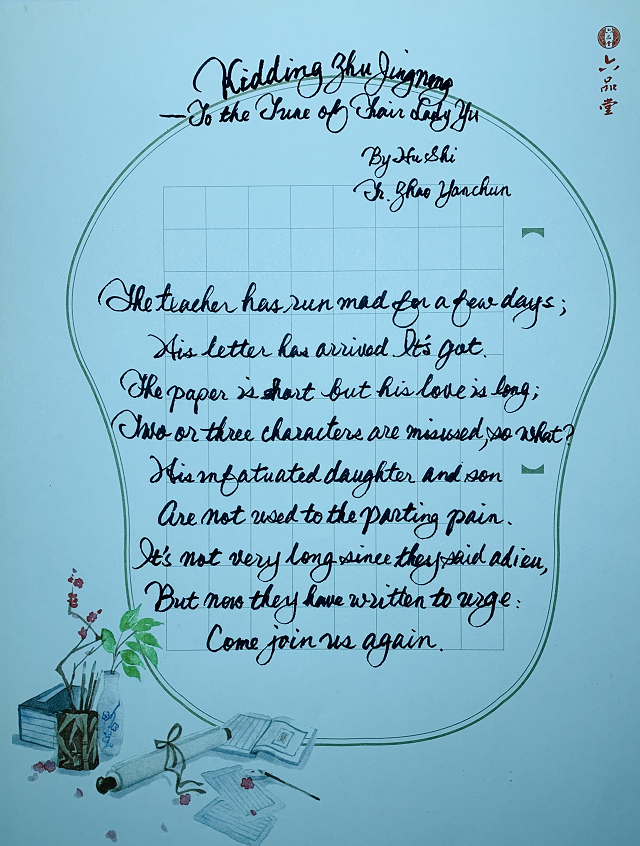 Kidding Zhu Jingnong
—To the Tune of Fair Lady Yu
By Hu Shi
Tr. Zhao Yanchun
六品堂
The teacher has run mad for a few days;
His letter has arrived. It's got.
The paper is short but his love is long;
Two or three characters are misused, so what?
His infatuated daughter and son
Are not used to the parting pain.
It's not very long since they said adieu,
But now they have written to urge:
Come join us again.